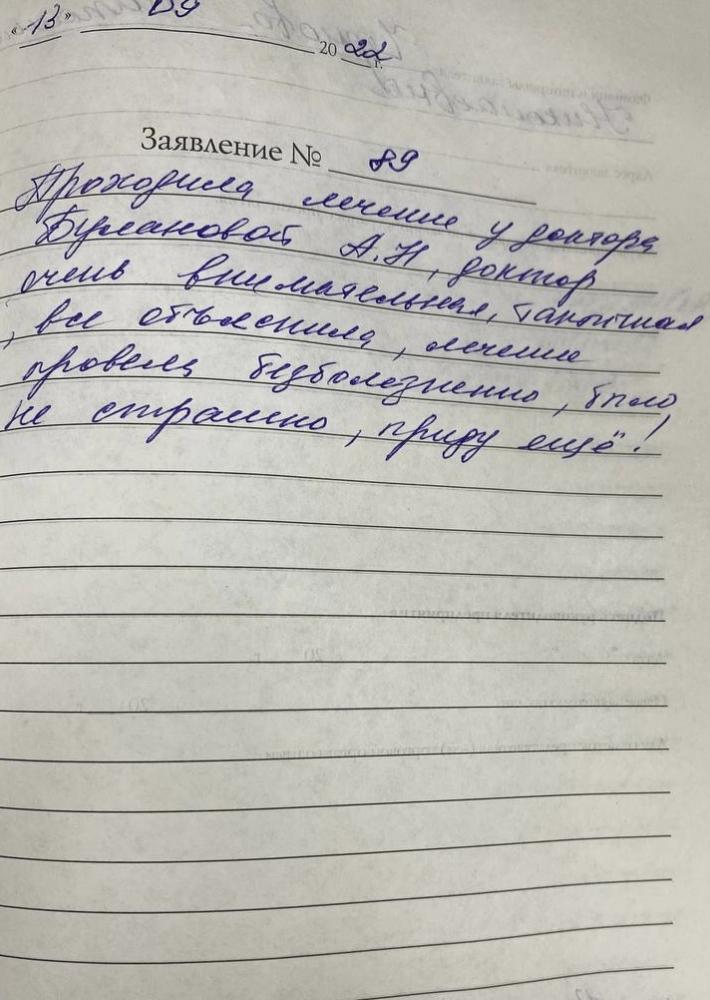 «13» 09
2022 г.
Заявление № 89
Проходила лечение у доктора
Булановой А.Н, доктор
очень внимательная, тактичная
, все объяснила, лечение
провела безболезненно, было
не страшно, приду ещё!